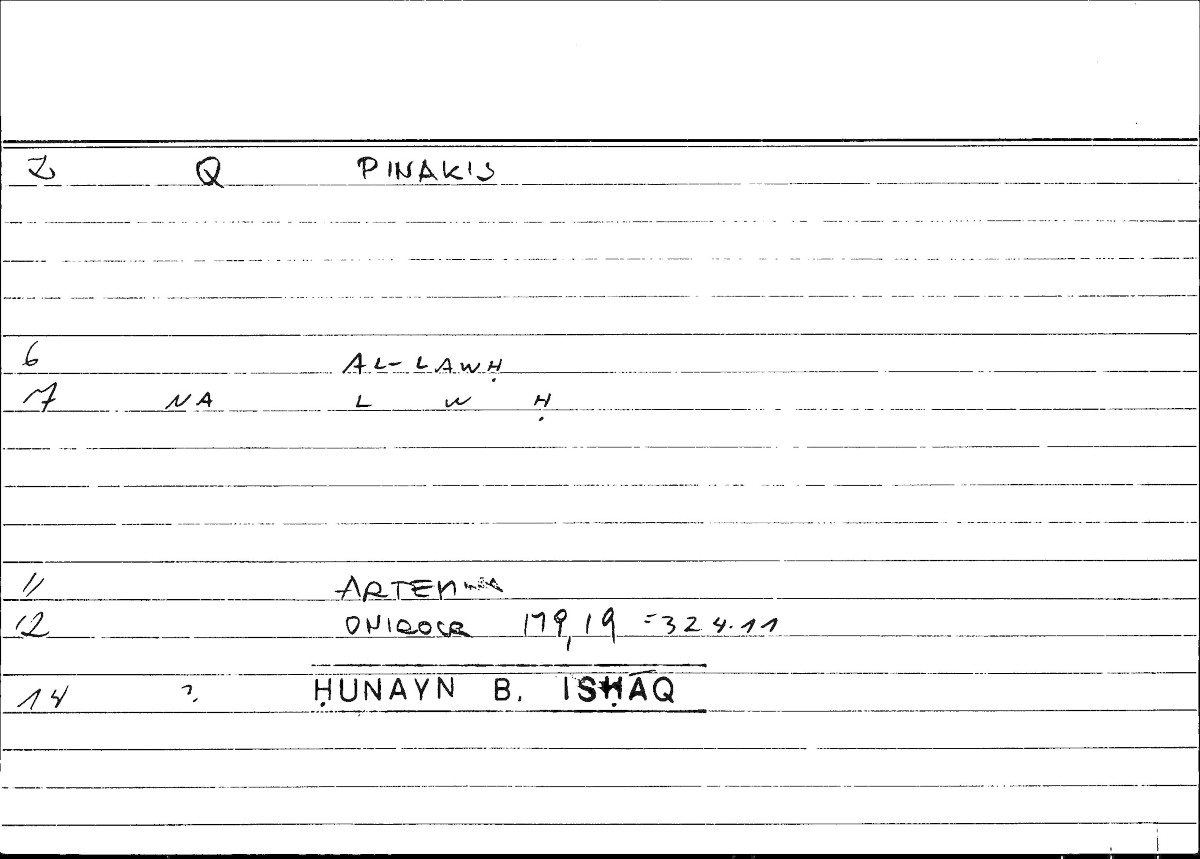 2 Q PINAKIS
6 AL-LAWḤ
7 NA L W Ḥ
11
12 ONIROCR 179,19 =324.11
14 ?. ḤUNAYN B. ISḤĀQ